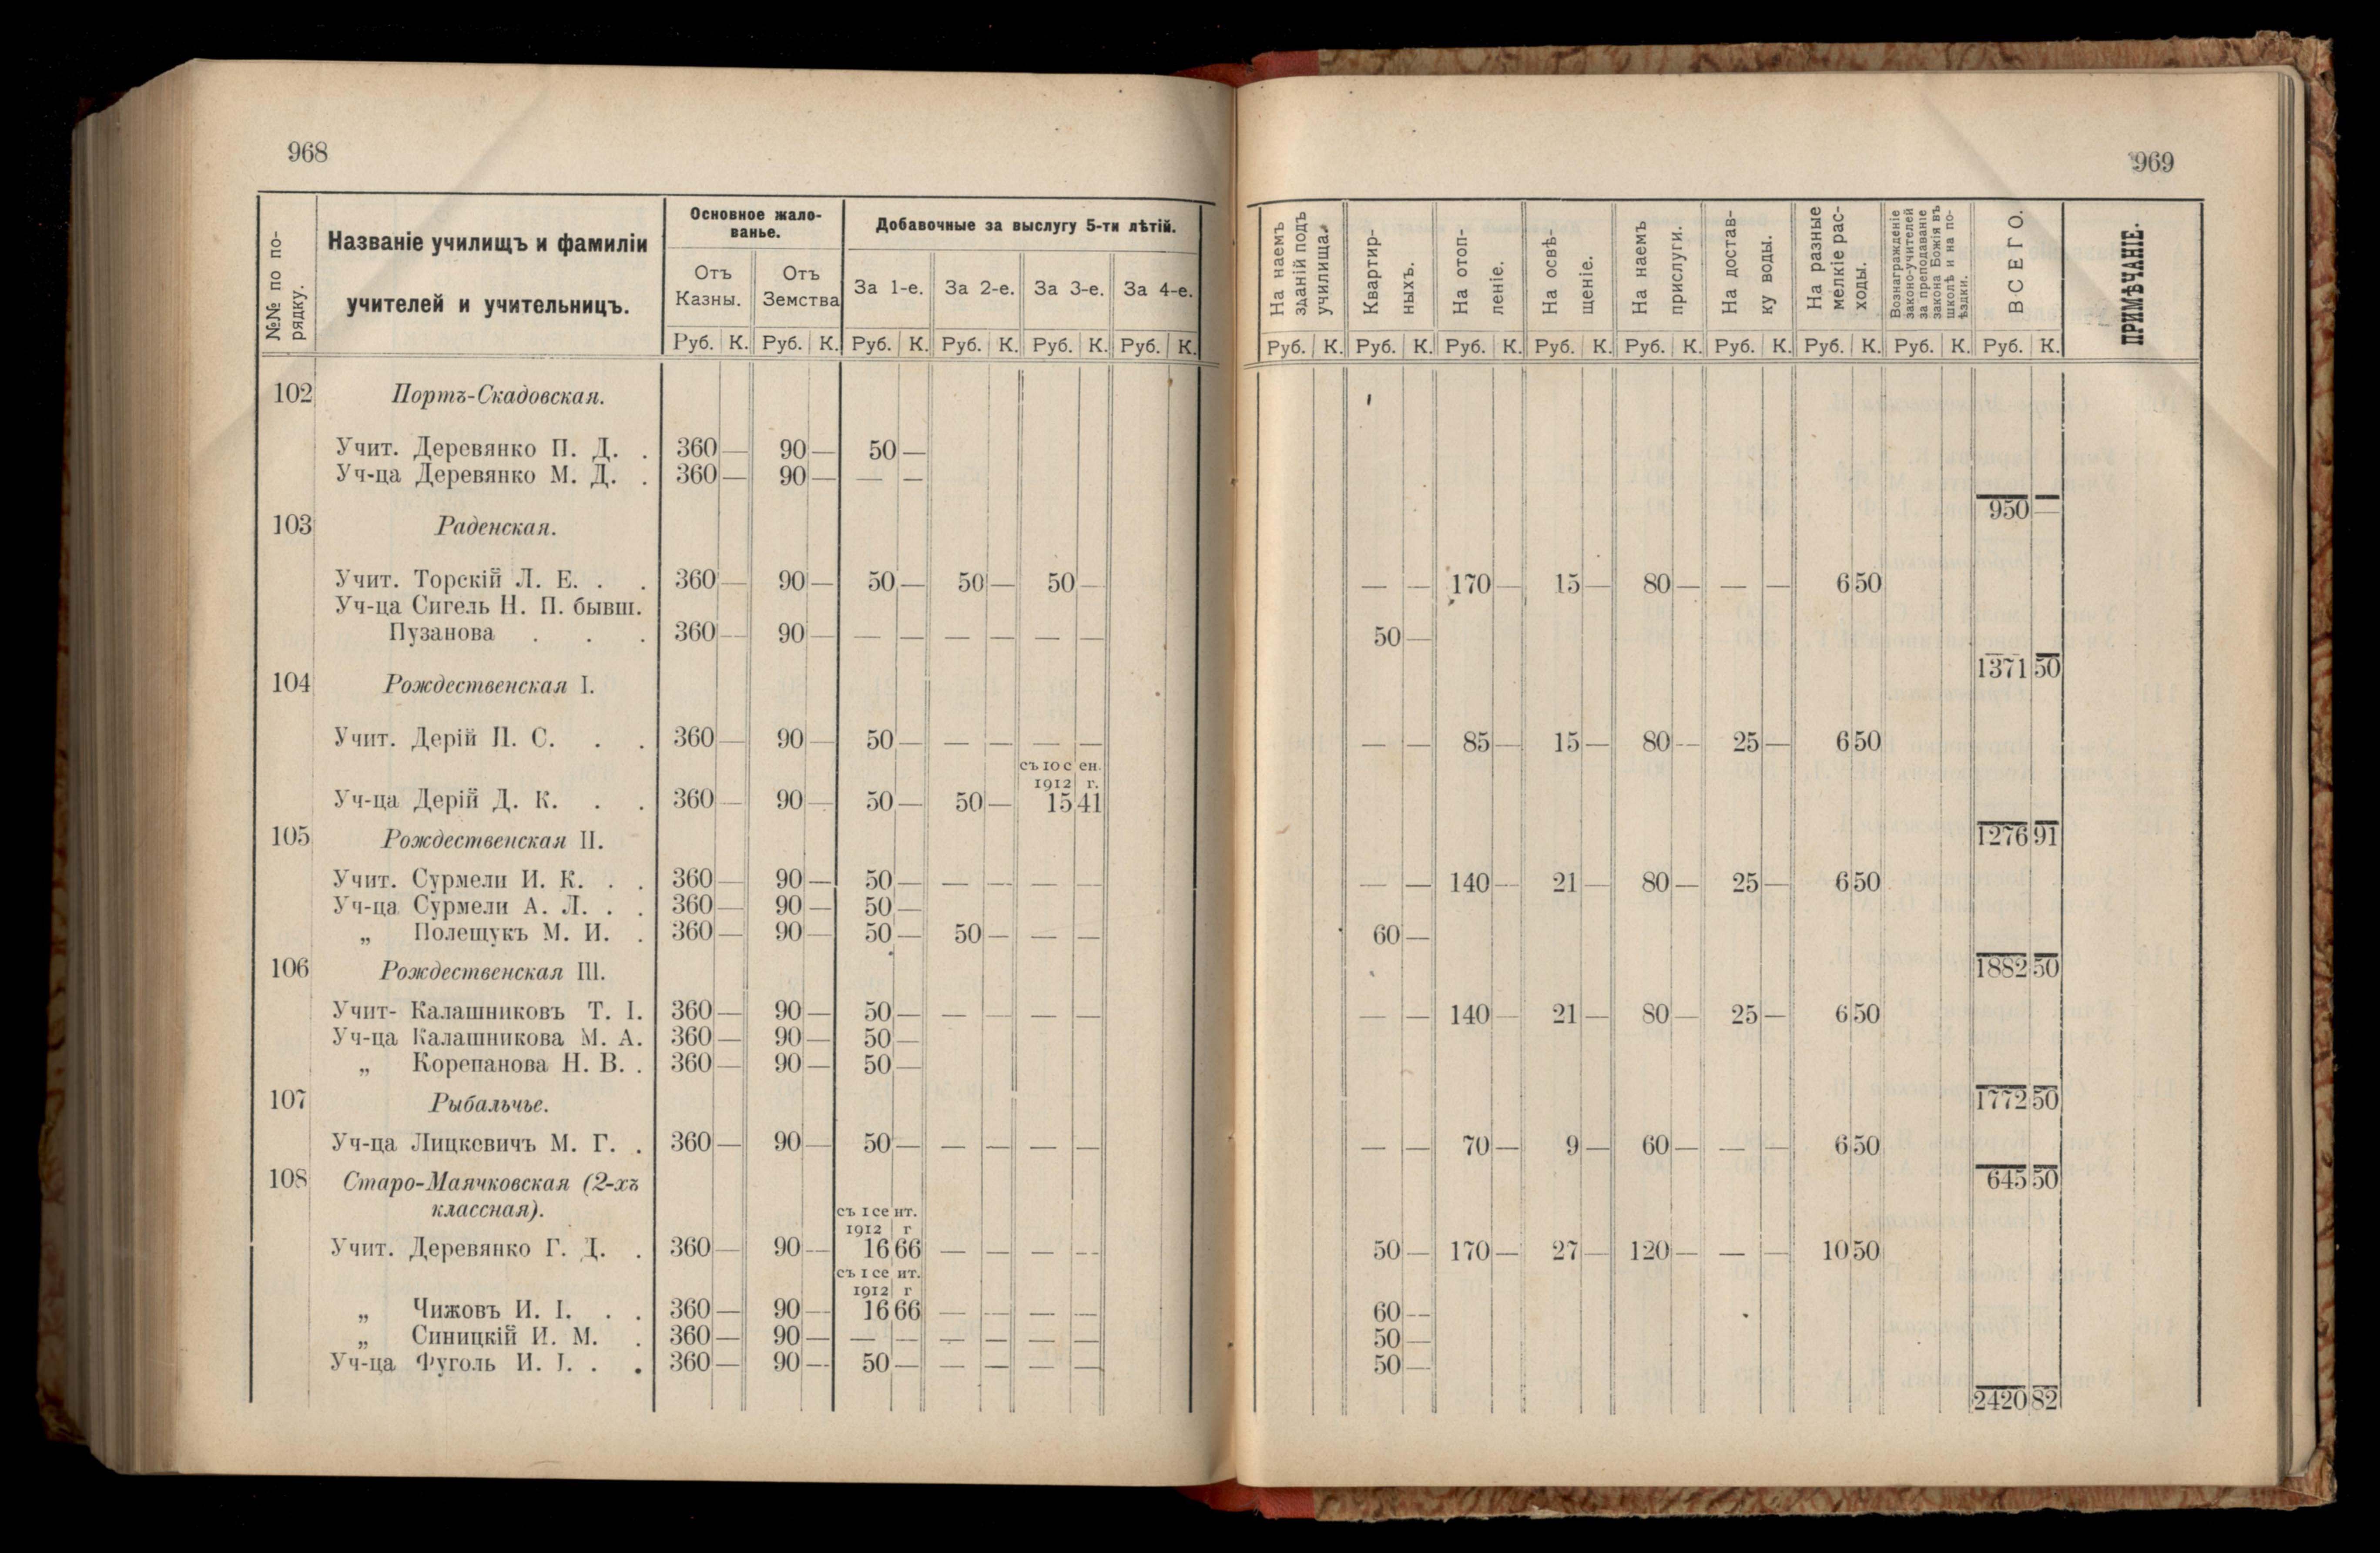 968
№№ по по-
рядку.
Названіе училищъ и фамиліи
учителей и учительницъ.
Основное жало-
ванье.
Добавочные за выслугу 5-ти лѣтій.
Отъ Казны.
Отъ Земства
За 1-е. За 2-е. За 3-е. За 4-е.
Руб. К. Руб. К. Руб. К. Руб. К. Руб. К. Руб. К.
102 Портъ-Скадовская.
Учит. Деревянко П. Д. . 360 — 90 — 50 —
Уч-ца Деревянко М. Д. . 360 — 90 — — —
103 Раденская.
Учит. Торскій Л. Е. . . 360 — 90 — 50 — 50 — 50 —
Уч-ца Сигель Н. П. бывш.
Пузанова . . . 360 — 90 — — — — — — —
104 Рождественская I.
Учит. Дерій П. С. . . 360 — 90 — 50 — — — — —
съ 10 сен.
1912 г.
Уч-ца Дерій Д. К. . . 360 — 90 — 50 — 50 — 15 41
105 Рождественская II.
Учит. Сурмели И. К. . . 360 — 90 — 50 — — — — —
Уч-ца Сурмели А. Л. . . 360 — 90 — 50 —
„ Полещукъ М. И. . 360 — 90 — 50 — 50 — — —
106 Рождественская III.
Учит- Калашниковъ Т. I. 360 — 90 — 50 — — — — —
Уч-ца Калашникова М. А. 360 — 90 — 50 —
„ Корепанова Н. В. . 360 — 90 — 50 —
107 Рыбальчье.
Уч-ца Лицкевичъ М. Г. . 360 — 90 — 50 — — — — —
108 Старо-Маячковская (2-хъ
классная).
съ 1 сент.
1912 г
Учит. Деревянко Г. Д. . 360 — 90 — 16 66 — — — —
съ 1 сент.
1912 г
„ Чижовъ И. I. . . 360 — 90 — 16 66 — — — —
„ Синицкій И. М. . 360 — 90 — — — — — — —
Уч-ца Фуголь И. I. . . 360 — 90 — 50 — — — — —
969
На наемъ
зданій подъ
училища.
Квартир-
ныхъ.
На отоп-
леніе.
На освѣ-
щеніе.
На наемъ
прислуги.
На достав-
ку воды.
На разные
мелкіе рас-
ходы.
Вознагражденіе
законо-учителей
за преподаваніе
закона Божія въ
школѣ и на по-
ѣздки.
ВСЕГО.
ПРИМѢЧАНІЕ.
Руб. К. Руб. К. Руб. К. Руб. К. Руб. К. Руб. К. Руб. К. Руб. К. Руб. К.
950 —
— — 170 — 15 — 80 — — — 6 50
50 —
1371 50
— — 85 — 15 — 80 — 25 — 6 50
1276 91
— — 140 — 21 — 80 — 25 — 6 50
60 —
1882 50
— — 140 — 21 — 80 — 25 — 6 50
1772 50
— — 70 — 9 — 60 — — — 6 50
645 50
50 — 170 — 27 — 120 — — — 10 50
60 —
50 —
50 —
2420 82